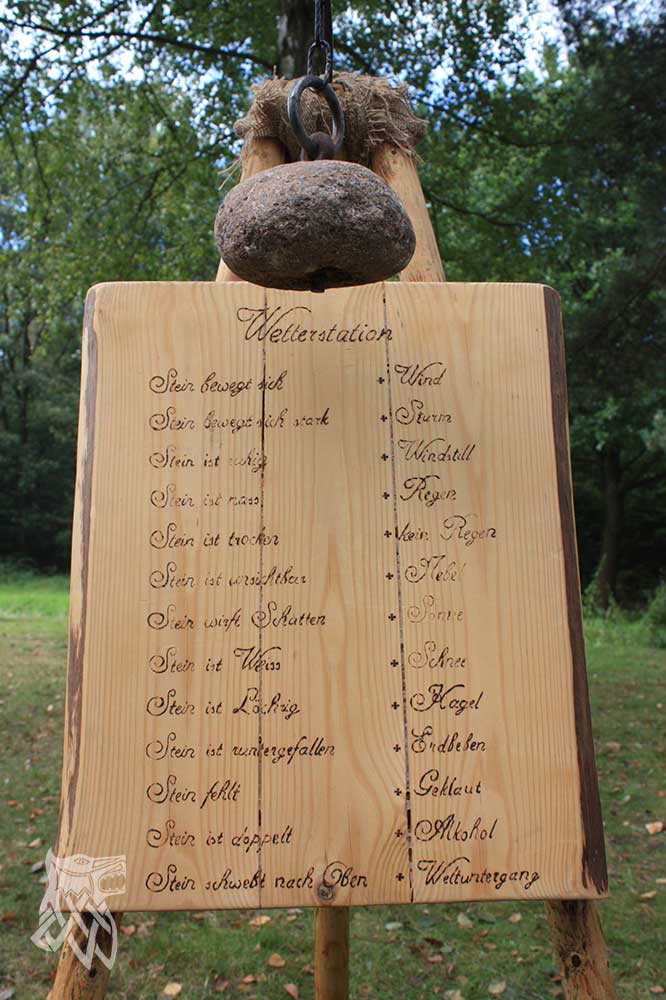 Wetterstation
Stein bewegt sich + Wind
Stein bewegt sich stark + Sturm
Stein ist ruhig + Windstill
Stein ist nass + Regen
Stein ist trocken + kein Regen
Stein ist unsichtbar + Nebel
Stein wirft Schatten + Sonne
Stein ist Weiss + Schnee
Stein ist Löchrig + Hagel
Stein ist runtergefallen + Erdbeben
Stein fehlt + Geklaut
Stein ist doppelt + Alkohol
Stein schwebt nach Oben + Weltuntergang